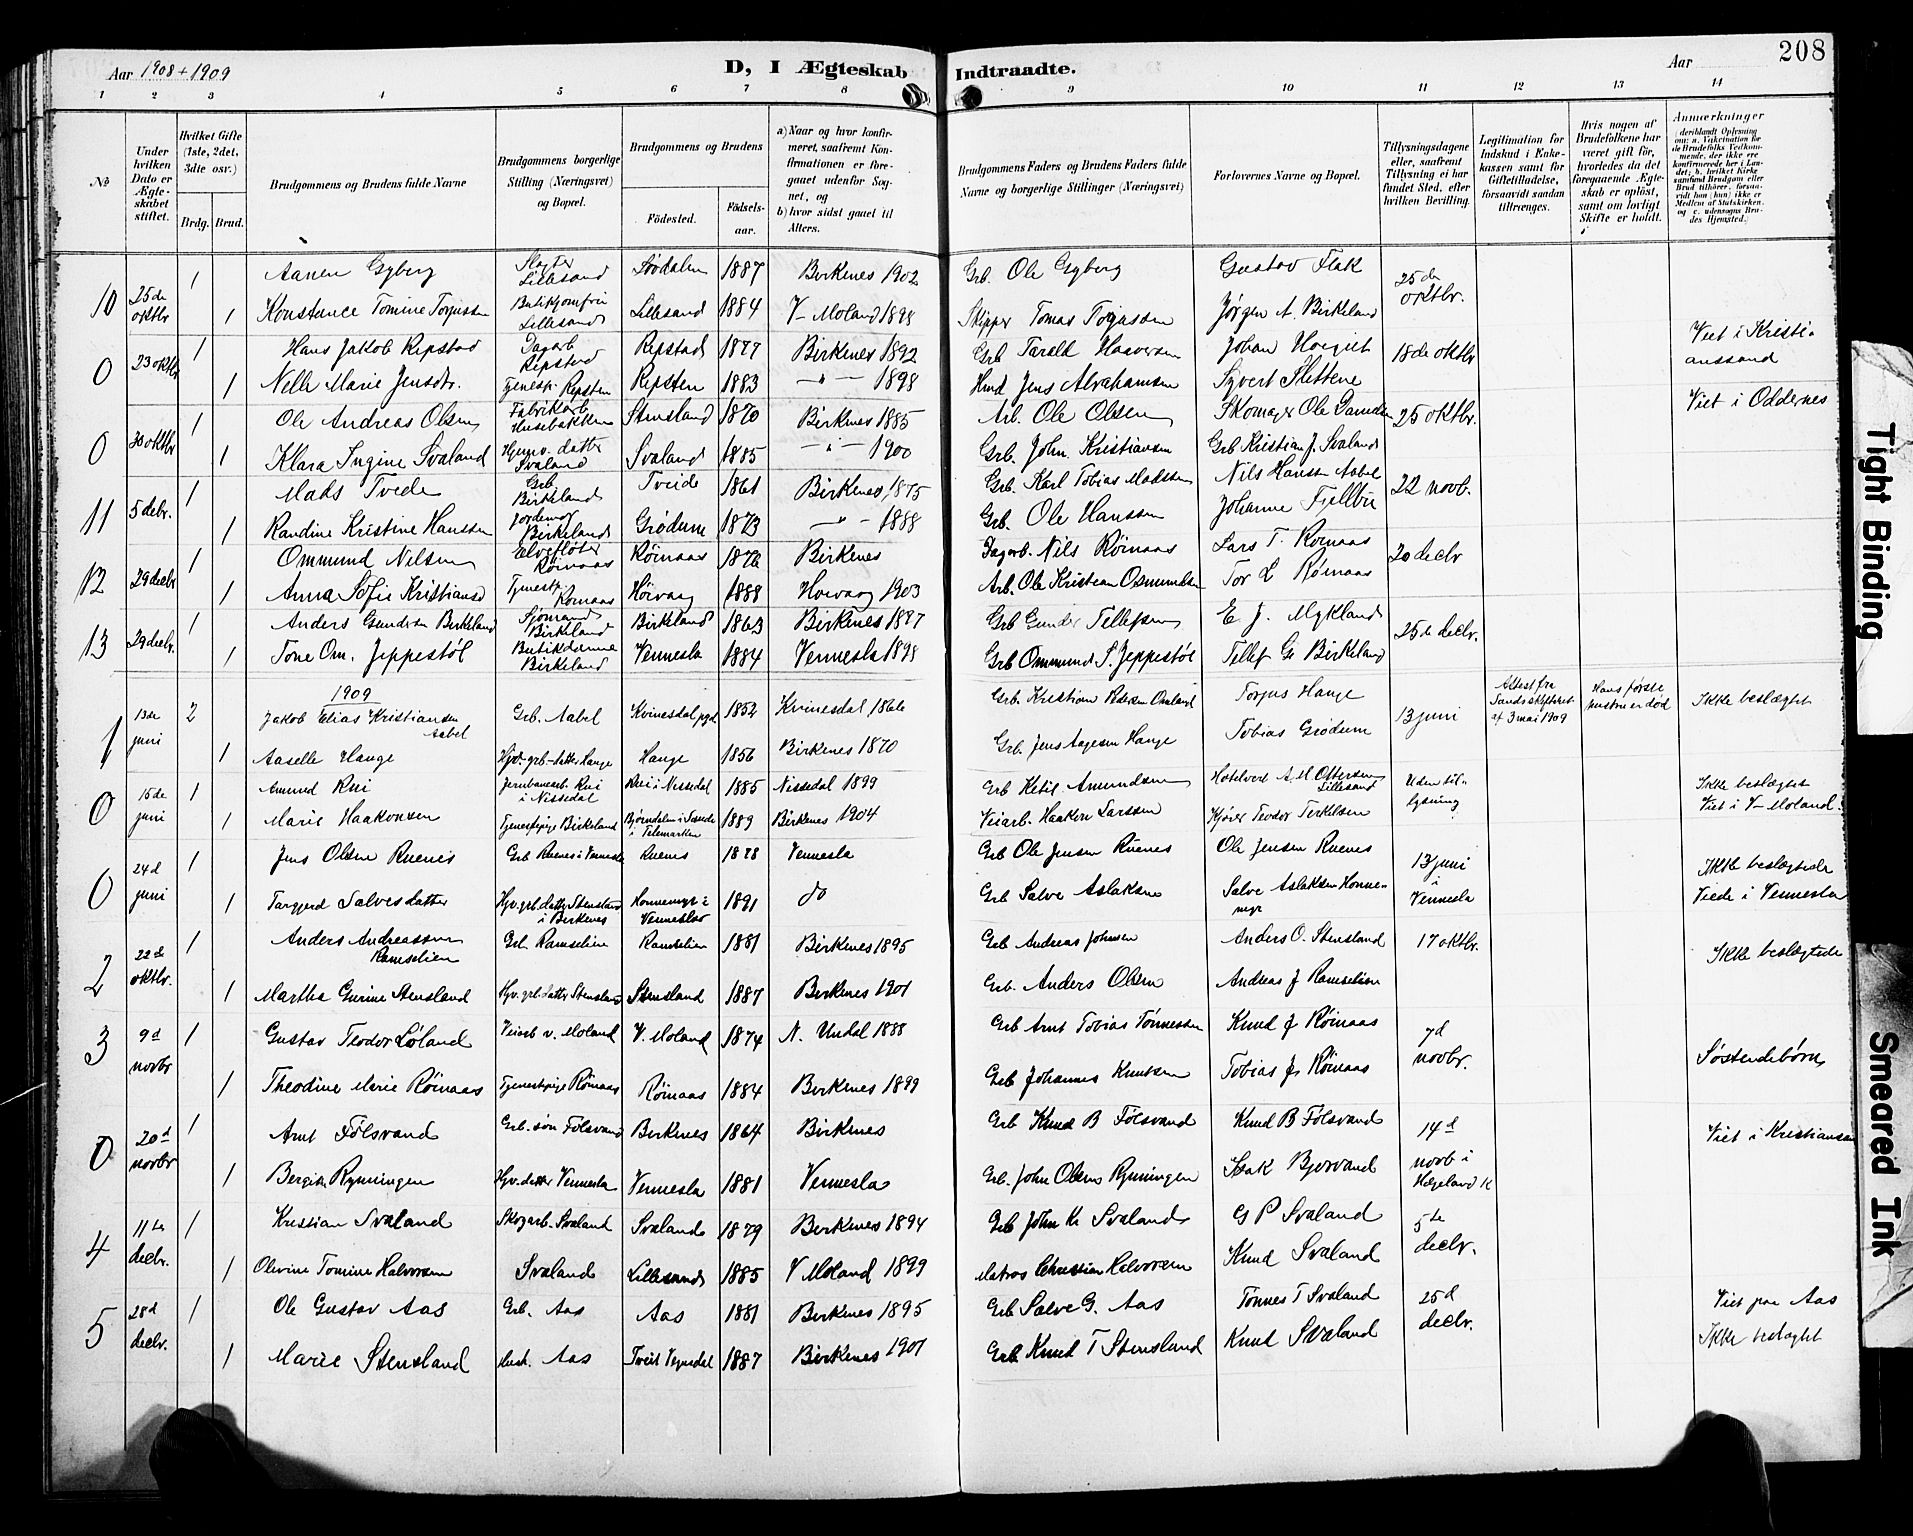 208
Aar 1908 + 1909
D, I Ægteskab Indtraadte.
Aar
1 2 3 4 5 6 7 8 9 10 11 12 13 14
No
Under hvilken Dato er Ægteskabet stiftet.
Hvilket Gifte (1ste, 2det, 3die osv.)
Brdg. Brud.
Brudgommens og Brudens fulde Navne
Brudgommens borgerlige Stilling (Næringsvei) og Bopæl.
Brudgommens og Brudens
Födested. Födselsaar.
a) Naar og hvor konfirmeret, saafremt Konfirmationen er foregaaet udenfor Sognet, og
b) hvor sidst gaaet til Alters.
Brudgommens Faders og Brudens Faders fulde Navne og borgerlige Stillinger (Næringsvei)
Forlovernes Navne og Bopæl.
Tillysningsdagene eller, saafremt Tillysning ei har fundet Sted, efter hvilken Bevilling.
Legitimation for Indskud i Enkekassen samt for Giftetilladelse, forsaavidt saadan tiltrænges.
Hvis nogen af Brudefolkene har været gift før, hvorledes da det foregaaende Ægteskab er opløst, samt om lovligt Skifte er holdt.
Anmærkninger
10 25de oktbr 1 Aanen Gyberg Slagter Lillesand Lødalen 1887 Birkenes 1902 Grb. Ole Gyberg Gustav Flak 25de oktbr.
1 Konstance Tomine Torjussen Butikjomfru Lillesand Lillesand 1884 V-Moland 1898 Skipper Tomas Torjussen Jørgen A. Birkeland
0 23 oktbr 1 Hans Jakob Repstad Dagarb Repstad Repstad 1877 Birkenes 1892 Grb Tarald Haaversen Johan 18de oktbr Viet i Kristianssand
1 Nelle Marie Jensdtr. Tjenestp. Repsten Repsten 1883 -"- 1898 Hmd Jens Abrahamsen Syvert Slettene
0 30 oktbr 1 Ole Andreas Olsen Fabrikarb Husebakken Stensland 1870 Birkenes 1885 Arb. Ole Olsen Skomager Ole 25 oktbr. Viet i Oddernes
1 Klara Ingine Svaland Hjemv. datter Svaland Svaland 1885 -"- 1900 Grb. John Kristiansen Grb Kristian J. Svaland
11 5 debr. 1 Mads Tveide Grb. Birkeland Tveide 1861 Birkenes 1875 Grb. Karl Tobias Madsen Nils Hansen Aabel 22 novb.
1 Randine Kristine Hanssen Jordemor Birkeland Grødum 1873 -"- 1888 Grb. Ole Hanssen Johanne Fjellbu
12 29 decbr 1 Ommund Nilsen Elvefløter Rømaas Rømaas 1876 Birkenes Dagarb. Nils Rømaas Lars T. Rømaas 20 decbr
1 Anna Sofie Kristiansd Tjenestp Rømaas Høivaag 1888 Høivaag 1903 Arb. Ole Kristian Osmundsen Tor L Rømaas
13 29 decbr. 1 Anders Gundersen Birkeland Sjømand Birkeland Birkeland 1863 Birkenes 1877 Grb Gunder Tellefsen E J. Mykland 25de decbr.
1 Tone Om. Jeppestøl Butikdame Birkeland Vennesla 1884 Vennesla 1898 Grb Ommund S. Jeppestøl Tellef G. Birkeland
1909
1 13de juni 2 Jakob Elias Kristiansen Aabel Grb. Aabel Kvinesdal pgd 1852 Kvinesdal 1866 Grb. Kristian Pedersen Omland Torjus Hauge 13 juni Attest fra Sands Skifteret af 3 mai 1909 Hans første hustru er død Ikke beslægtet
1 Aaselle Hauge Hjv. grb-datter Hauge Hauge 1856 Birkenes 1870 Grb. Jens Aagesen Hauge Tobias Grødum
0 15de juni 1 Amund Rui Jernbanearb. Rui i Nissedal Rui i Nissedal 1885 Nissedal 1899 Grb Ketil Amundsen Hotelvert A. M. Ottersen Lillesand Uden tillysning Ikke beslægtet Viet i V-Moland
1 Marie Haakonsen Tjenestpige Birkeland 1889 Birkenes 1904 Veiarb. Haakon Larssen Kjører Teodor Terkelsen
0 24d juni 1 Jens Olsen Ruenes Grb Ruenes i Vennesla Ruenes 1878 Vennesla Grb Ole Jensen Ruenes Ole Jensen Ruenes 13 juni i Vennesla Ikke beslægtede Viede i Vennesla
1 Targjerd Salvesdatter Hjv. grb. datter Stensland i Birkenes Honnemyr i Vennesla 1891 do Grb Salve Aslaksen Salve Aslaksen Honnemyr
2 22de oktbr. 1 Anders Andreassen Ramselien Grb Ramselien Ramselien 1881 Birkenes 1895 Grb Andreas Johnsen Anders O. Stensland 17 oktbr. Ikke beslægtede
1 Martha Gurine Stensland Hjv. grb. datter Stensland Stensland 1887 Birkenes 1901 Grb. Anders Olsen Andreas J Ramselien
3 9d novbr 1 Gustav Teodor Løland Veiarb V. Moland V. Moland 1874 N. Undal 1888 Grb Arnt Tobias Tønnessen Knud J Rømaas 7d novbr. Søskendebørn
1 Theodine Marie Rømaas Tjenestpige Rømaas Rømaas 1884 Birkenes 1899 Grb Johannes Knutsen Tobias J. Rømaas
0 20d novbr 1 Arnt Følsvand Grb. søn Følsvand Birkenes 1864 Birkenes Grb Knud B Følsvand Knud B Følsvand 14d novb i Hægeland K Viet i Kristiansan
1 Bergite Rynningen Hjv. datter Vennesla Vennesla 1881 Vennesla Grb. John Olsen Rynningen Isak Bjorvand
4 11te decbr. 1 Kristian Svaland Skogarb. Svaland Svaland 1879 Birkenes 1894 Grb John K. Svaland G P Svaland 5te decbr.
1 Olevine Tomine Halvorsen Svaland Lillesand 1885 V Moland 1899 Matros Christian Halvorsen Knud Svaland
5 28d decbr. 1 Ole Gustav Aas Grb. Aas Aas 1881 Birkenes 1895 Grb Salve G. Aas Tønnes T Svaland 25d decbr. Viet paa Aas
1 Marie Stensland Aas Tveit 1887 Birkenes 1901 Grb Knud T Stensland Knud Svaland Ikke beslægtet
Tight Binding
Smeared Ink